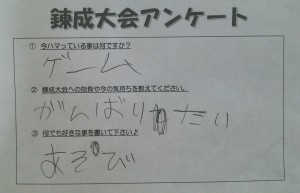 錬成大会アンケート
① 今ハマっている事は何ですか?
ゲーム
② 錬成大会への抱負や今の気持ちを教えてください。
がんばりたい
③ 何でも好きな事を書いて下さい♪
あそび